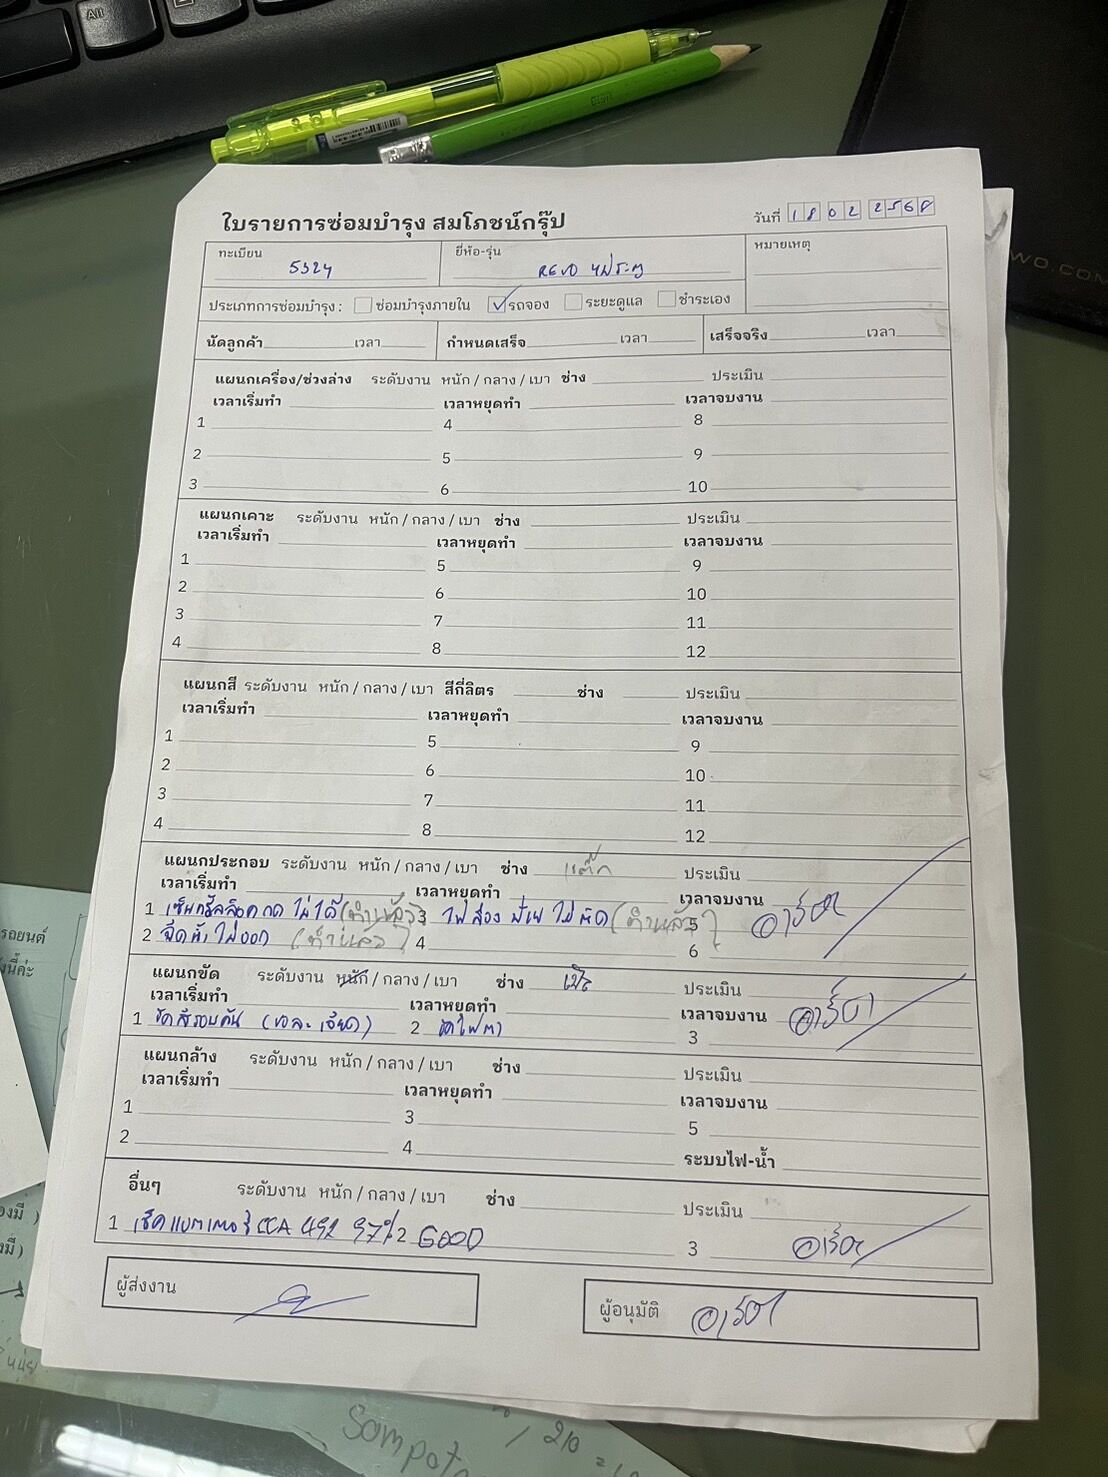 All
ใบรายการซ่อมบำรุง สมโภชน์กรุ๊ป
วันที่ 18 02 2568
ทะเบียน 5324
ยี่ห้อ-รุ่น REVO 4ประตู
หมายเหตุ
ประเภทการซ่อมบำรุง : ซ่อมบำรุงภายใน ✓รถจอง ระยะดูแล ชำระเอง
นัดลูกค้า เวลา กำหนดเสร็จ เวลา เสร็จจริง เวลา
แผนกเครื่อง/ช่วงล่าง ระดับงาน หนัก / กลาง / เบา ช่าง ประเมิน
เวลาเริ่มทำ เวลาหยุดทำ เวลาจบงาน
1 4 8
2 5 9
3 6 10
แผนกเคาะ ระดับงาน หนัก / กลาง / เบา ช่าง ประเมิน
เวลาเริ่มทำ เวลาหยุดทำ เวลาจบงาน
1 5 9
2 6 10
3 7 11
4 8 12
แผนกสี ระดับงาน หนัก / กลาง / เบา สีกี่ลิตร ช่าง ประเมิน
เวลาเริ่มทำ เวลาหยุดทำ เวลาจบงาน
1 5 9
2 6 10
3 7 11
4 8 12
แผนกประกอบ ระดับงาน หนัก / กลาง / เบา ช่าง ประเมิน
เวลาเริ่มทำ เวลาหยุดทำ เวลาจบงาน
1 เซ็นทรัลล็อคกดไม่ได้ (ทำแล้ว) 3 ไฟส่องป้ายไม่ติด (ทำแล้ว) 5
2 ฉีดน้ำไม่ออก (ทำแล้ว) 4 6
แผนกขัด ระดับงาน หนัก / กลาง / เบา ช่าง ประเมิน
เวลาเริ่มทำ เวลาหยุดทำ เวลาจบงาน
1 ขัดสีรอบคัน 2 ขัดไฟตา 3
แผนกล้าง ระดับงาน หนัก / กลาง / เบา ช่าง ประเมิน
เวลาเริ่มทำ เวลาหยุดทำ เวลาจบงาน
1 3 5
2 4 ระบบไฟ-น้ำ
อื่นๆ ระดับงาน หนัก / กลาง / เบา ช่าง ประเมิน
1 เช็คแบตเตอรี่ CCA 492 97% 2 GOOD 3
ผู้ส่งงาน
ผู้อนุมัติ
รถยนต์
Sompot
210